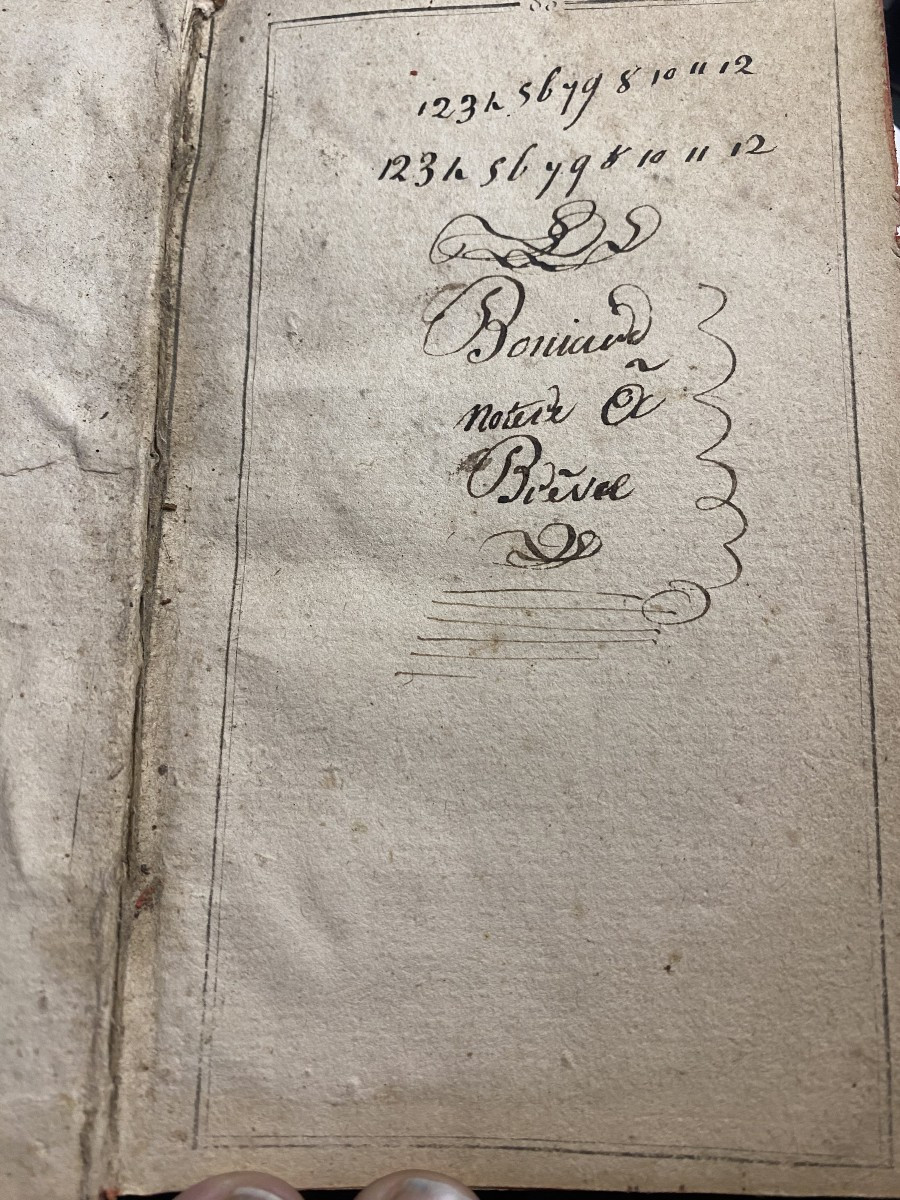 1 2 3 4 5 6 7 9 8 10 11 12
1 2 3 4 5 6 7 9 8 10 11 12
Boniard
notere Ã